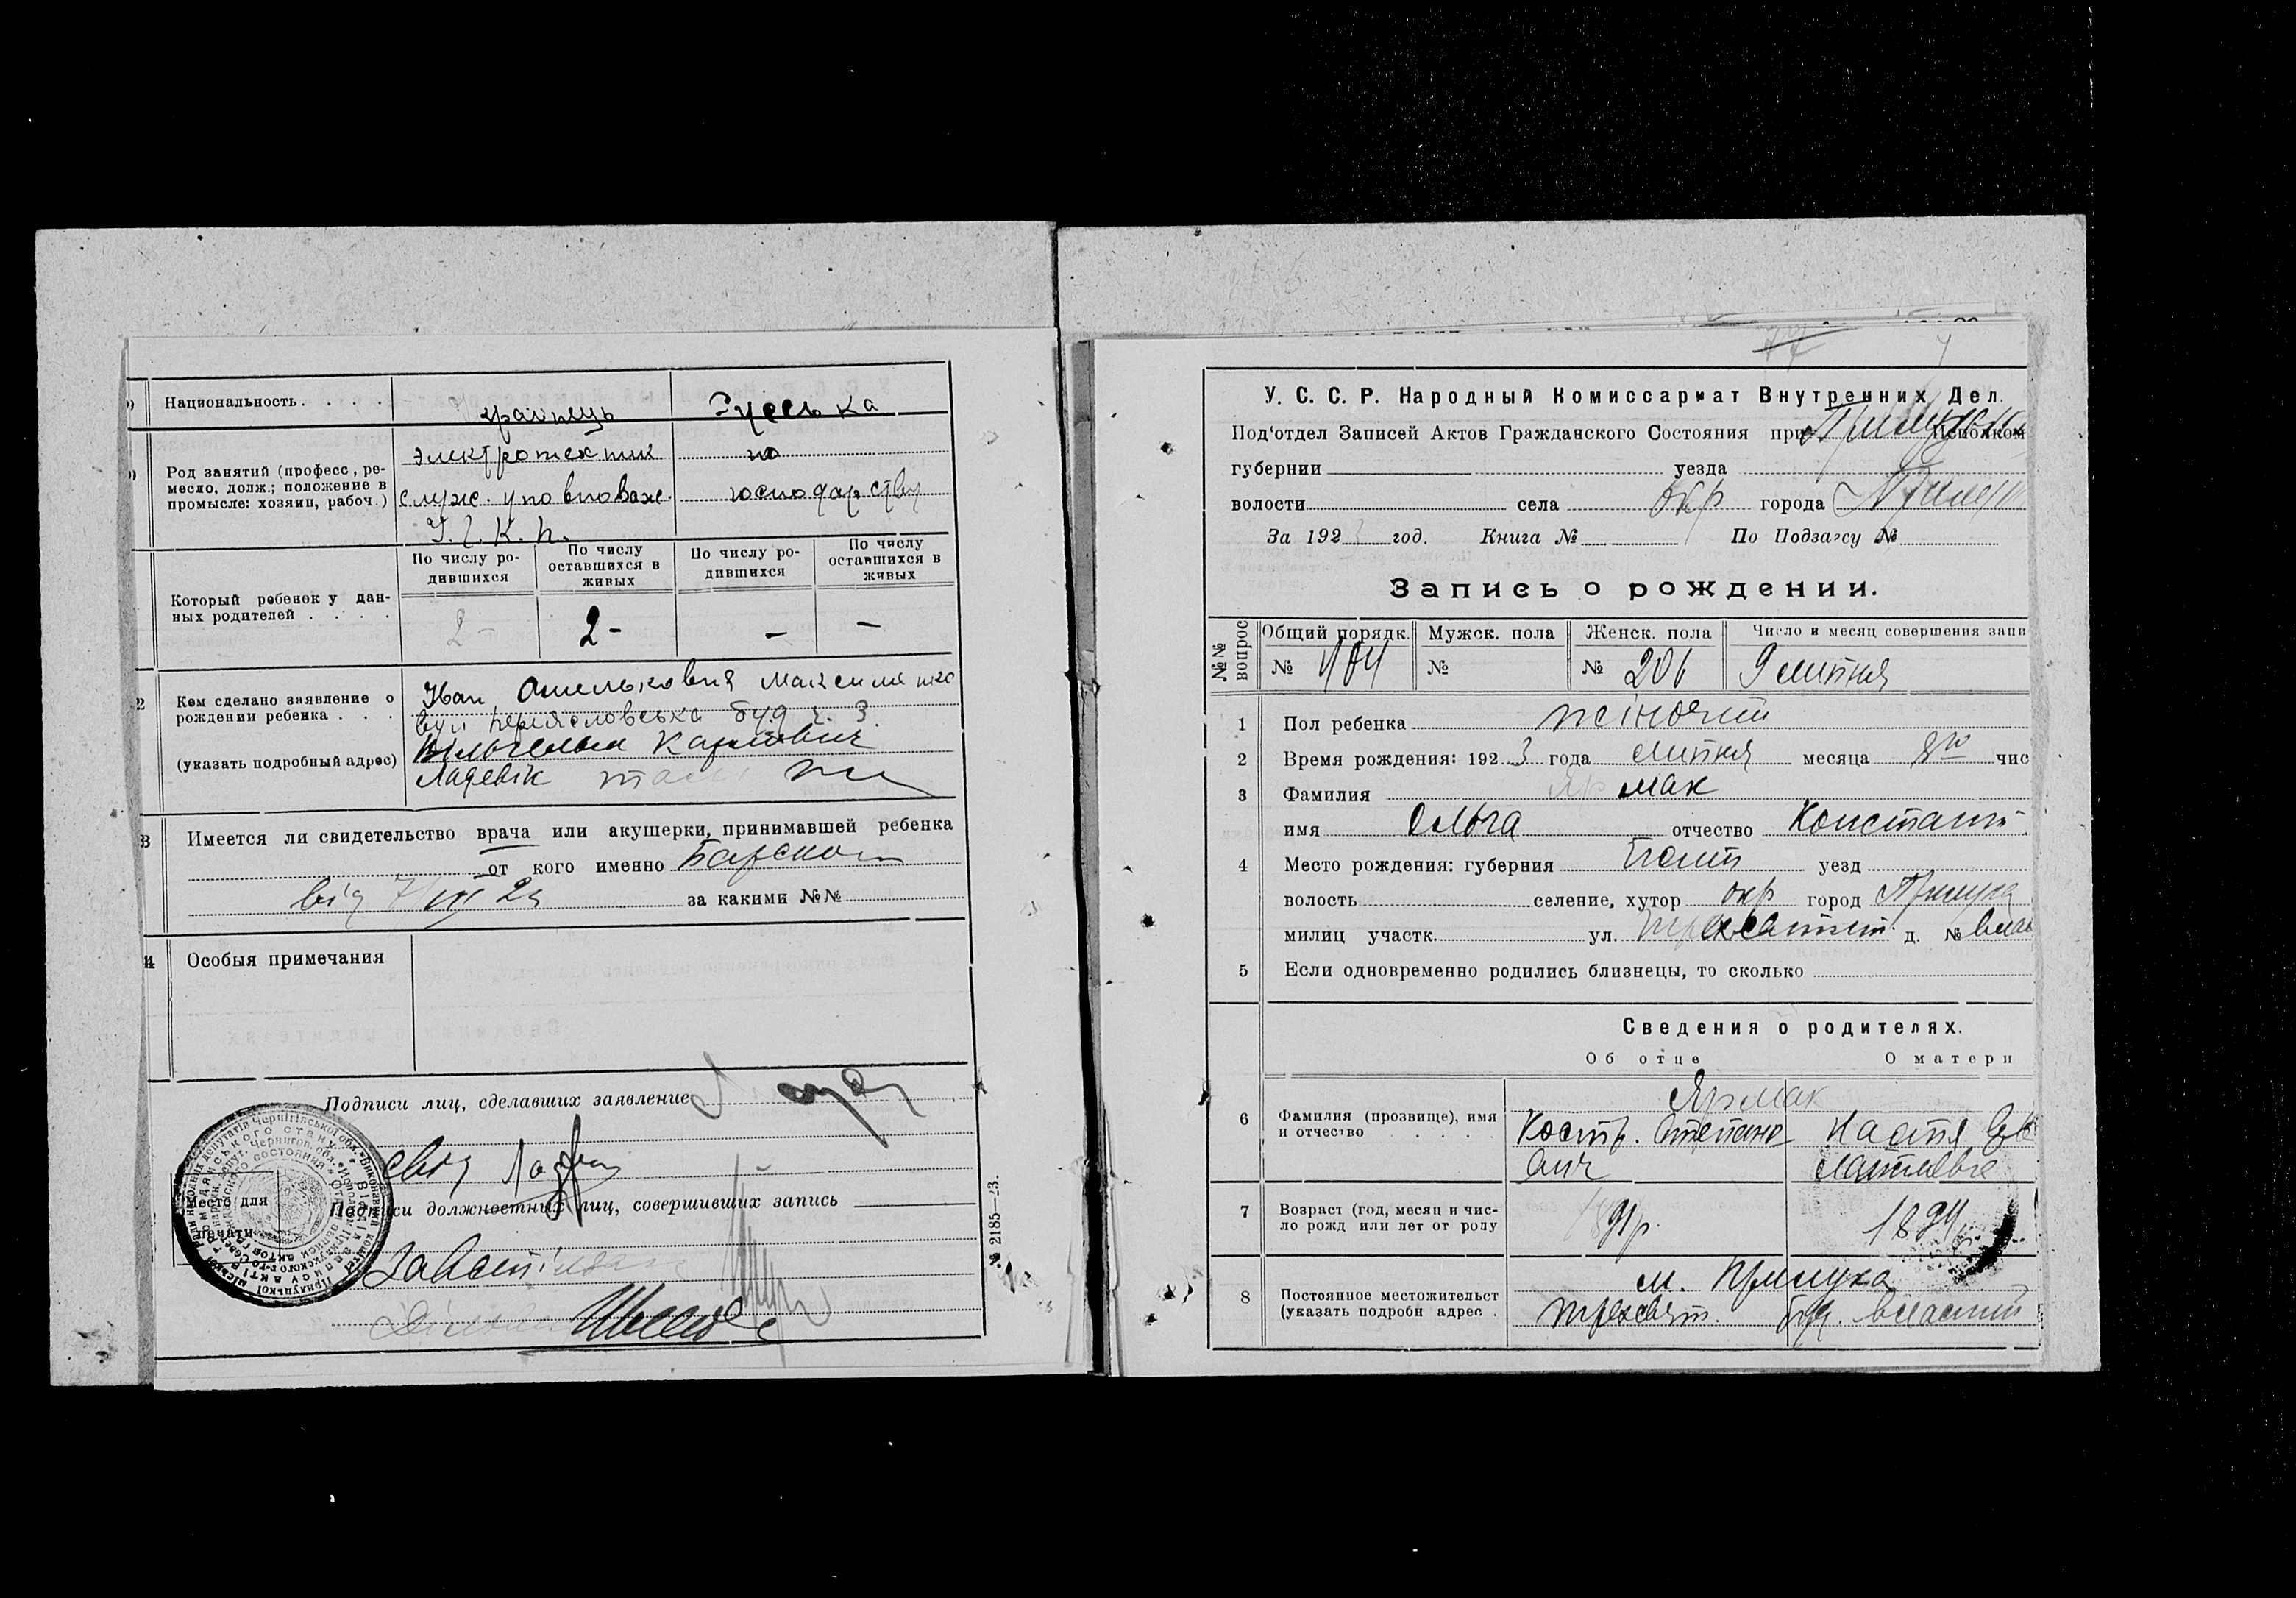 Национальность. . . . .
украінець
Руська
Род занятий (професс, ре-
месло, долж.; положение в
промысле: хозяин, рабоч.)
электротехник
служ. уповноваж.
по
господарству
Который ребенок у дан-
ных родителей . . . .
По числу ро-
дившихся
По числу
оставшихся в
живых
По числу ро-
дившихся
По числу
оставшихся в
живых
2 -
2 -
–
–
2
Кем сделано заявление о
рождении ребенка . . .
(указать подробный адрес)
Иван Омелькович Максименко
вул Переясловська буд ч. 3.
Вільгельм Карлович
Ладевік
3
Имеется ли свидетельство врача или акушерки, принимавшей ребенка
от кого именно
від 7/VII 23
за какими №№
4
Особыя примечания
Подписи лиц, сделавших заявление
Подписи должностных лиц, совершивших запись
Место для
печати
№ 2185—23.
У. С. С. Р. Народный Комиссариат Внутренних Дел.
Под'отдел Записей Актов Гражданского Состояния при Исполком
губернии уезда
волости села окр города
За 192 год. Книга № По Подзагсу №
Запись о рождении.
№№
вопрос
Общий порядк.
Мужск. пола
Женск. пола
Число и месяц совершения запи
№
№
№ 206
9 липня
1 Пол ребенка жіночий
2 Время рождения: 192 3 года липня месяца 8го чис
3 Фамилия Ярмак
имя Ольга отчество Констант.
4 Место рождения: губерния Полт уезд
волость селение, хутор окр город Прилука
милиц участк. ул. Трехсвятит. д. № влас
5 Если одновременно родились близнецы, то сколько
Сведения о родителях.
Об отце
О матери
6
Фамилия (прозвище), имя
и отчество . . . .
Ярмак
Кость. Степано
вич
Настя
7
Возраст (год, месяц и чис-
ло рожд или лет от роду
1891р.
1894
8
Постоянное местожительст
(указать подробн адрес .
м. Прилука
Трехсвят. буд. власний